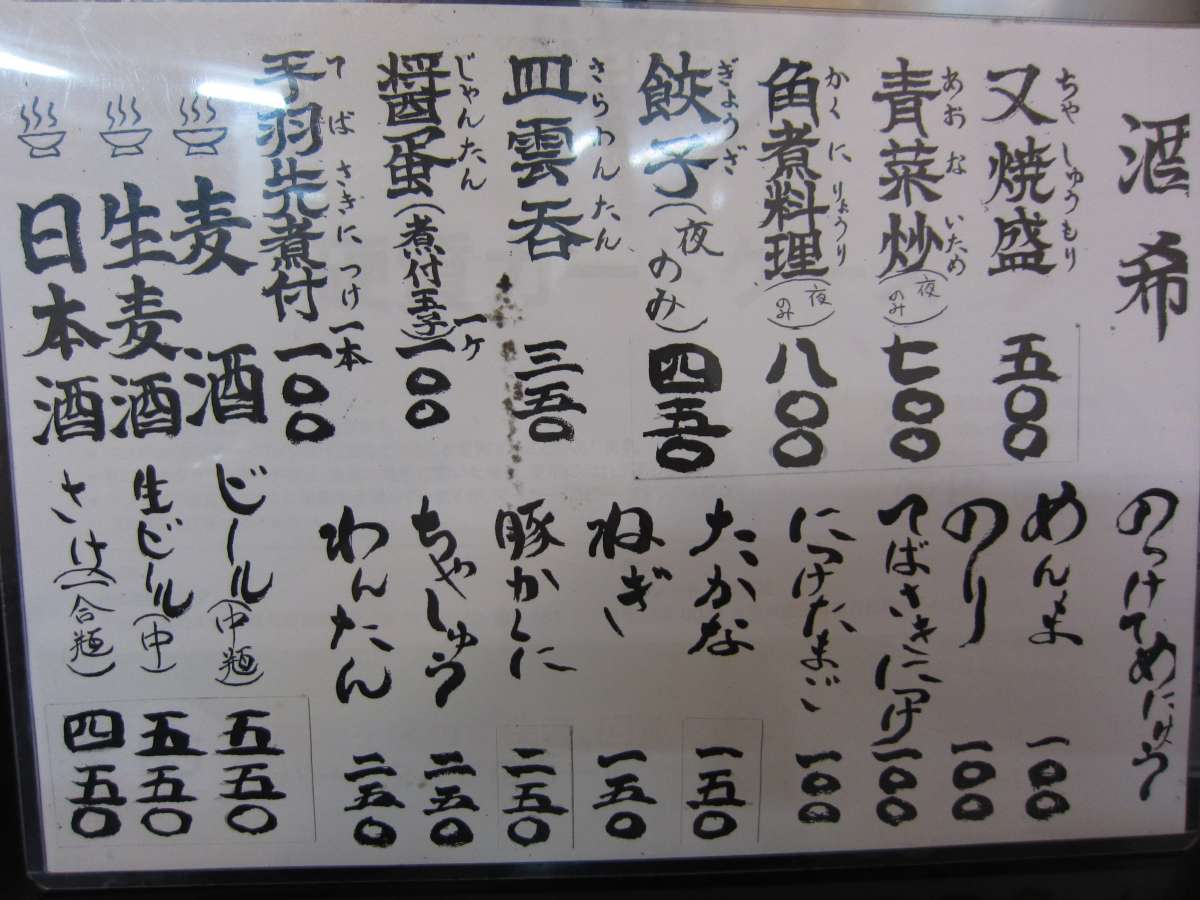 酒希
又焼盛 ちゃしゅうもり 五〇〇
青菜炒 あおないため (夜のみ) 七〇〇
角煮料理 かくにりょうり (夜のみ) 八〇〇
餃子 ぎょうざ (夜のみ) 四五〇
皿雲呑 さらわんたん 三五〇
醤蛋 じゃんたん (煮付玉子) 一ケ 一〇〇
手羽先煮付 てばさきにつけ 一本 一〇〇
のっけてめにゅう
めんま 一〇〇
のり 一〇〇
てばさきにつけ 一〇〇
につけたまご 一〇〇
たかな 一五〇
ねぎ 一五〇
豚かくに 二五〇
ちゃしゅう 二五〇
わんたん 二五〇
麦酒 ビール (中瓶) 五五〇
生麦酒 生ビール (中) 五五〇
日本酒 さけ (一合瓶) 四五〇